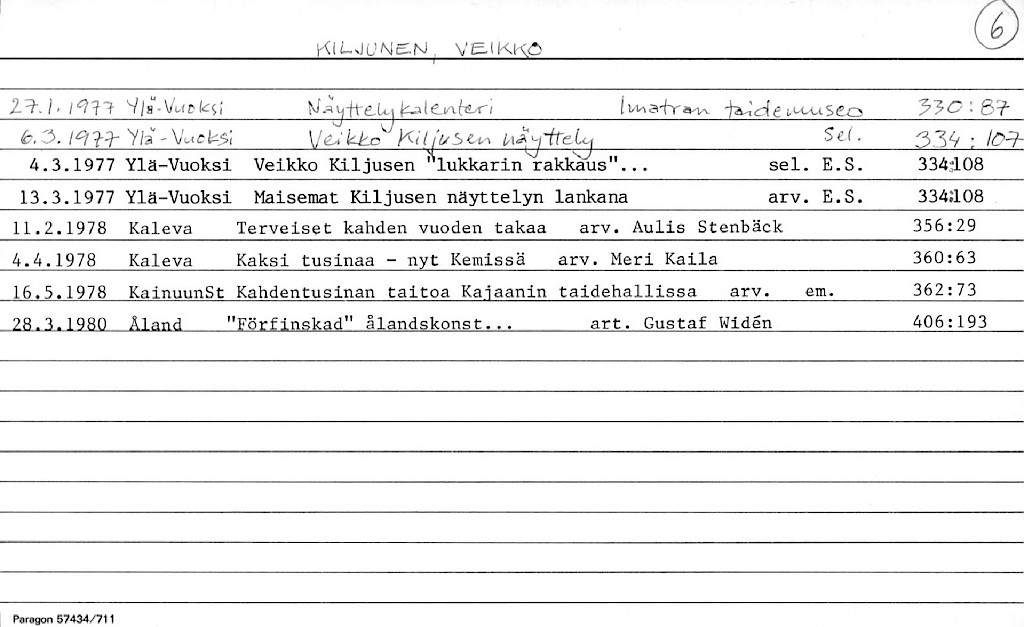 6
KILJUNEN, VEIKKO
27.1.1977 Ylä-Vuoksi Näyttelykalenteri Imatran taidemuseo 330:87
6.3.1977 Ylä-Vuoksi Veikko Kiljusen näyttely Sel. 334:107
4.3.1977 Ylä-Vuoksi Veikko Kiljusen "lukkarin rakkaus"... sel. E.S. 334:108
13.3.1977 Ylä-Vuoksi Maisemat Kiljusen näyttelyn lankana arv. E.S. 334:108
11.2.1978 Kaleva Terveiset kahden vuoden takaa arv. Aulis Stenbäck 356:29
4.4.1978 Kaleva Kaksi tusinaa - nyt Kemissä arv. Meri Kaila 360:63
16.5.1978 KainuunSt Kahdentusinan taitoa Kajaanin taidehallissa arv. em. 362:73
28.3.1980 Åland "Förfinskad" ålandskonst... art. Gustaf Widén 406:193
Paragon 57434/711